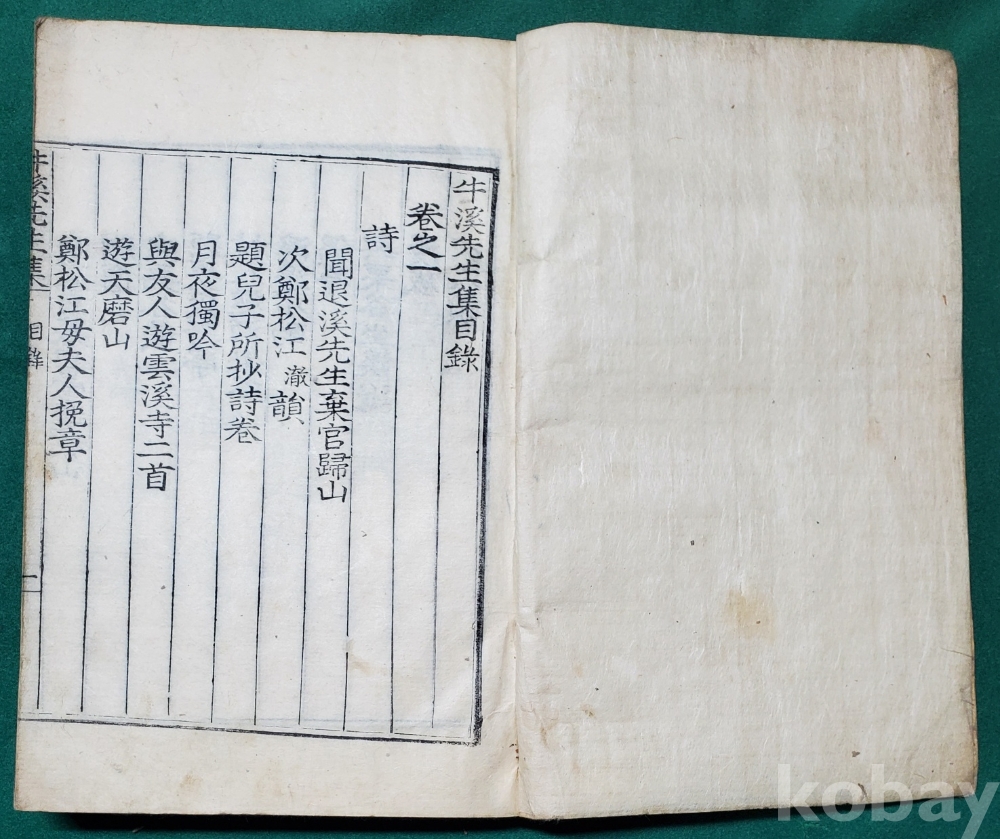 牛溪先生集目錄
卷之一
詩
聞退溪先生棄官歸山
次鄭松江澈韻
題兒子所抄詩卷
月夜獨吟
與友人遊雲溪寺二首
遊天磨山
鄭松江母夫人挽章
牛溪先生集 目錄 一
kobay